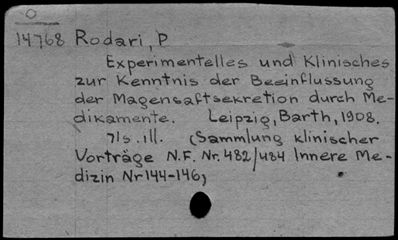 14768 Rodari, P
Experimentelles und Klinisches
zur Kenntnis der Beeinflussung
der Magensaftsekretion durch Me-
dikamente. Leipzig, Barth, 1908.
71s. ill. (Sammlung klinischer
Vorträge N.F. Nr. 482/484 Innere Me-
dizin Nr 144-146)